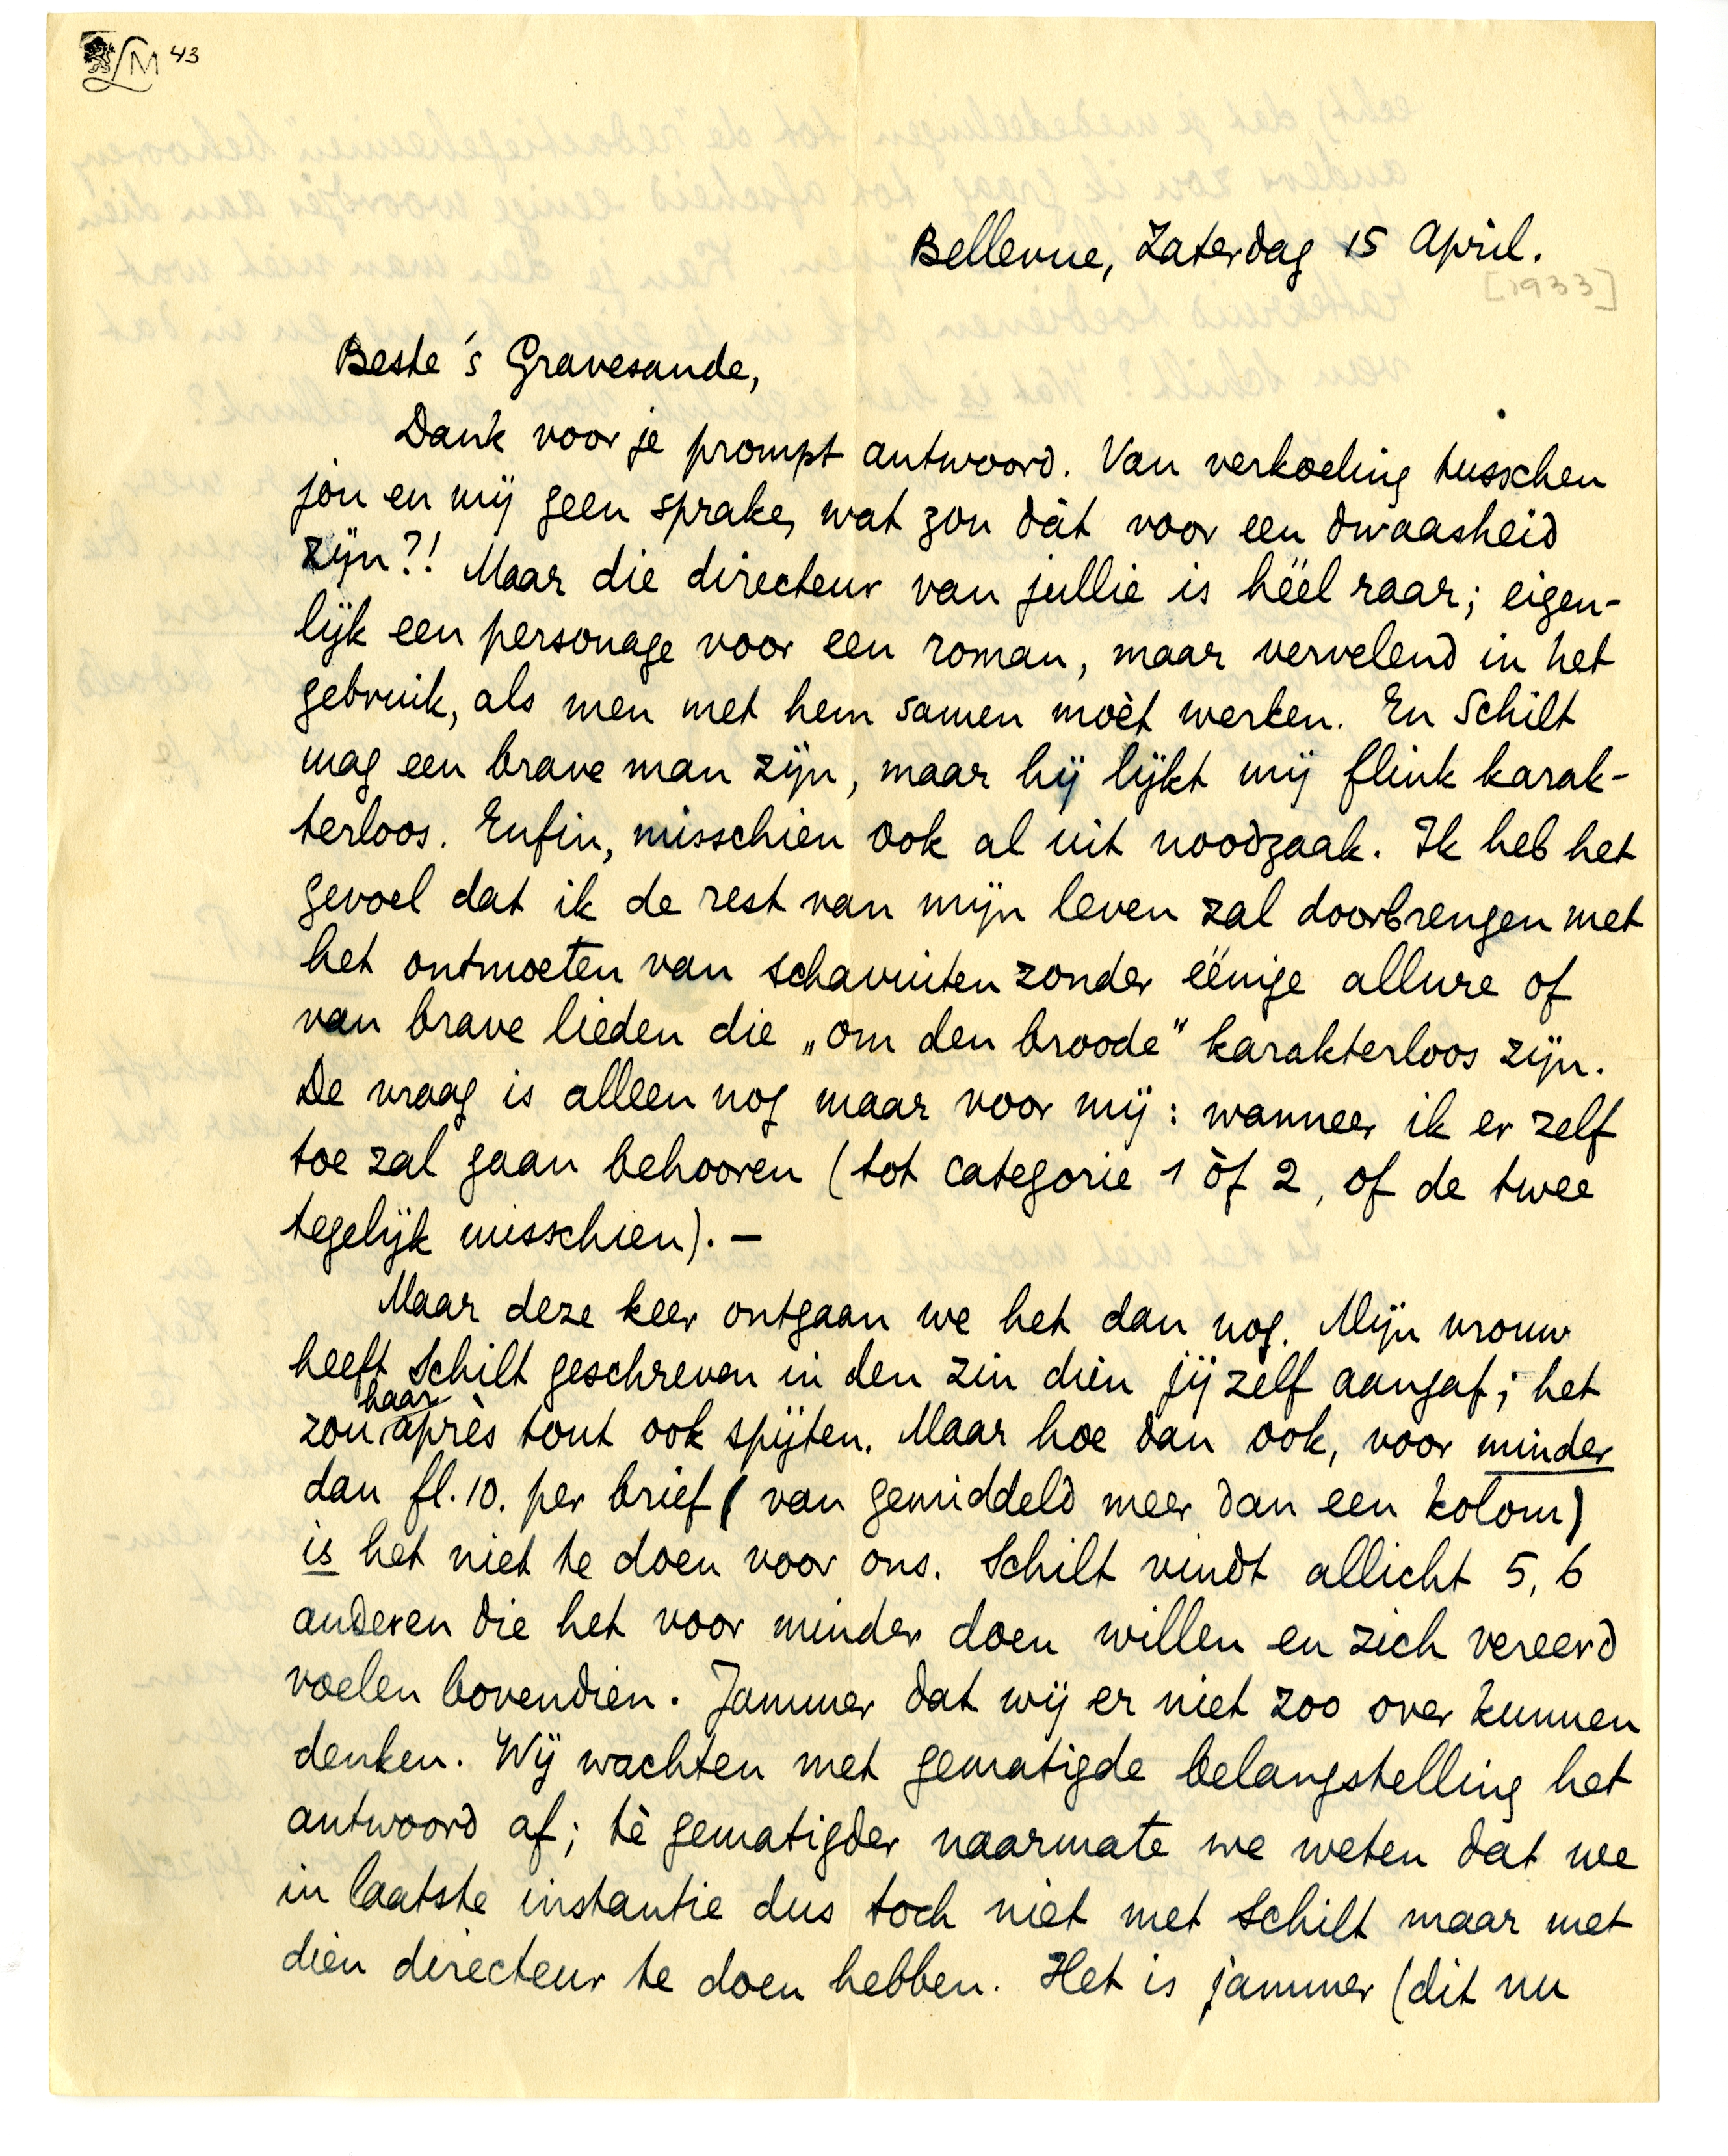 LM 43
Bellevue, Zaterdag 15 April.
[1933]
Beste 's Gravesande,
Dank voor je prompt antwoord. Van verkoeling tusschen
jou en mij geen sprake, wat zou dàt voor een dwaasheid
zijn?! Maar die directeur van jullie is héél raar; eigen-
lijk een personage voor een roman, maar vervelend in het
gebruik, als men met hem samen moèt werken. En Schilt
mag een brave man zijn, maar hij lijkt mij flink karak-
terloos. Enfin, misschien ook al uit noodzaak. Ik heb het
gevoel dat ik de rest van mijn leven zal doorbrengen met
het ontmoeten van schavuiten zonder éénige allure of
van brave lieden die „om den broode" karakterloos zijn.
De vraag is alleen nog maar voor mij: wanneer ik er zelf
toe zal gaan behooren (tot categorie 1 òf 2, of de twee
tegelijk misschien). —
Maar deze keer ontgaan we het dan nog. Mijn vrouw
heeft Schilt geschreven in den zin dien jij zelf aangaf; het
zou haar après tout ook spijten. Maar hoe dan ook, voor minder
dan fl. 10. per brief (van gemiddeld meer dan een kolom)
is het niet te doen voor ons. Schilt vindt allicht 5, 6
anderen die het voor minder doen willen en zich vereerd
voelen bovendien. Jammer dat wij er niet zoo over kunnen
denken. Wij wachten met gematigde belangstelling het
antwoord af; tè gematigder naarmate we weten dat we
in laatste instantie dus toch niet met Schilt maar met
dien directeur te doen hebben. Het is jammer (dit nu